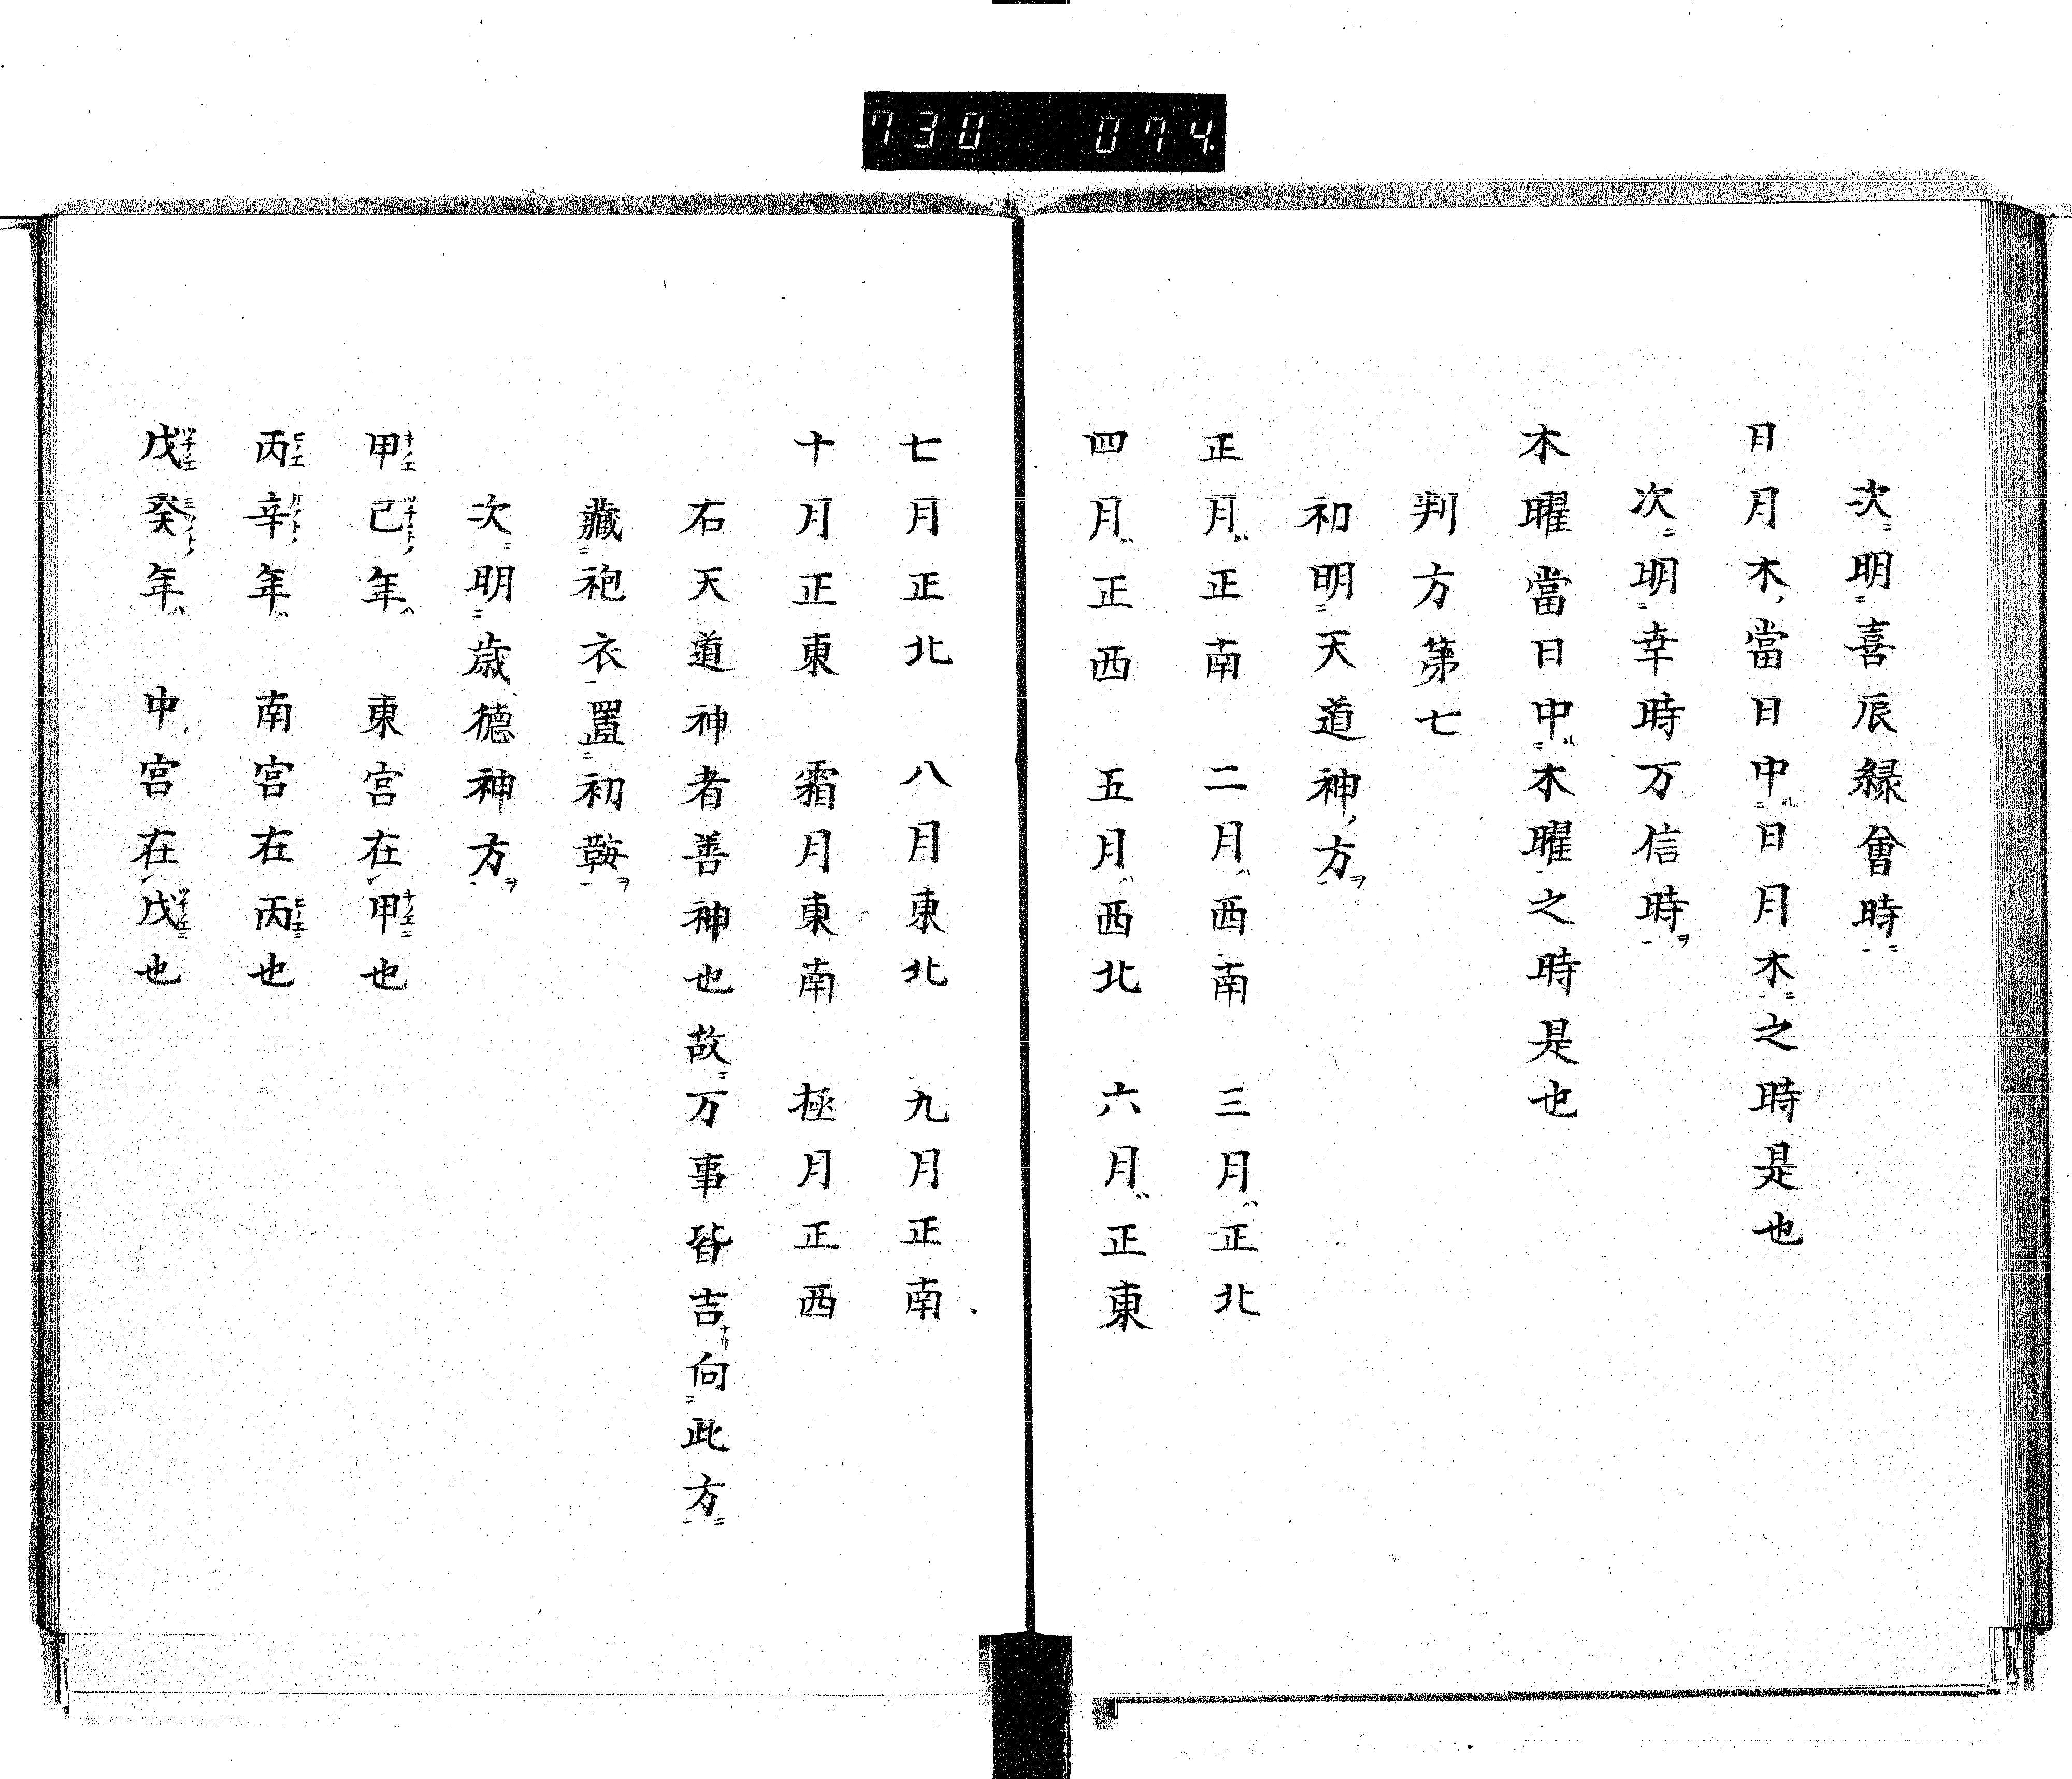 730 074.
次明喜辰縁會時
日月木當日中日月木之時是也
次明幸時万信時
木曜當日中木曜之時是也
判方第七
初明天道神方
正月正南 二月西南 三月正北
四月正西 五月西北 六月正東
七月正北 八月東北 九月正南
十月正東 霜月東南 極月正西
右天道神者善神也故万事皆吉向此方
藏袍衣置初鞍
次明歳徳神方
甲己年 東宮在甲也
丙辛年 南宮在丙也
戊癸年 中宮在戊也